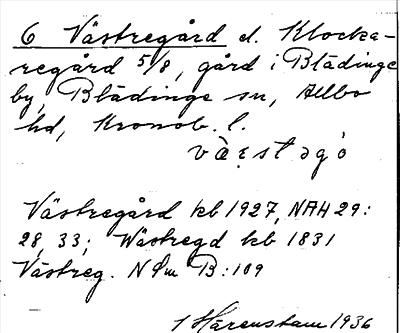 6 Västregård el. Klocka-
regård 5/8, gård i Blädinge
by, Blädinge sn, Allbo
hd, Kronob. l.
Västregård kb 1927, NAH 29:
28, 33; Wästregd hb 1831
Västreg. N Sm B:109
1 Härenstam 1936